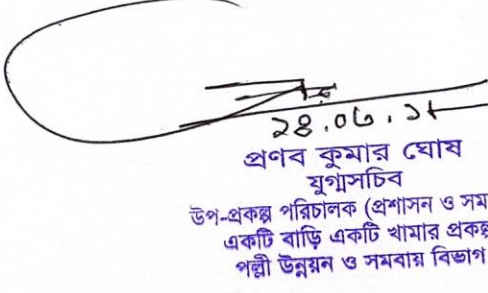 ২৪.০৬.১৮
প্রণব কুমার ঘোষ
যুগ্মসচিব
উপ-প্রকল্প পরিচালক (প্রশাসন ও সম
একটি বাড়ি একটি খামার প্রকল্প
পল্লী উন্নয়ন ও সমবায় বিভাগ